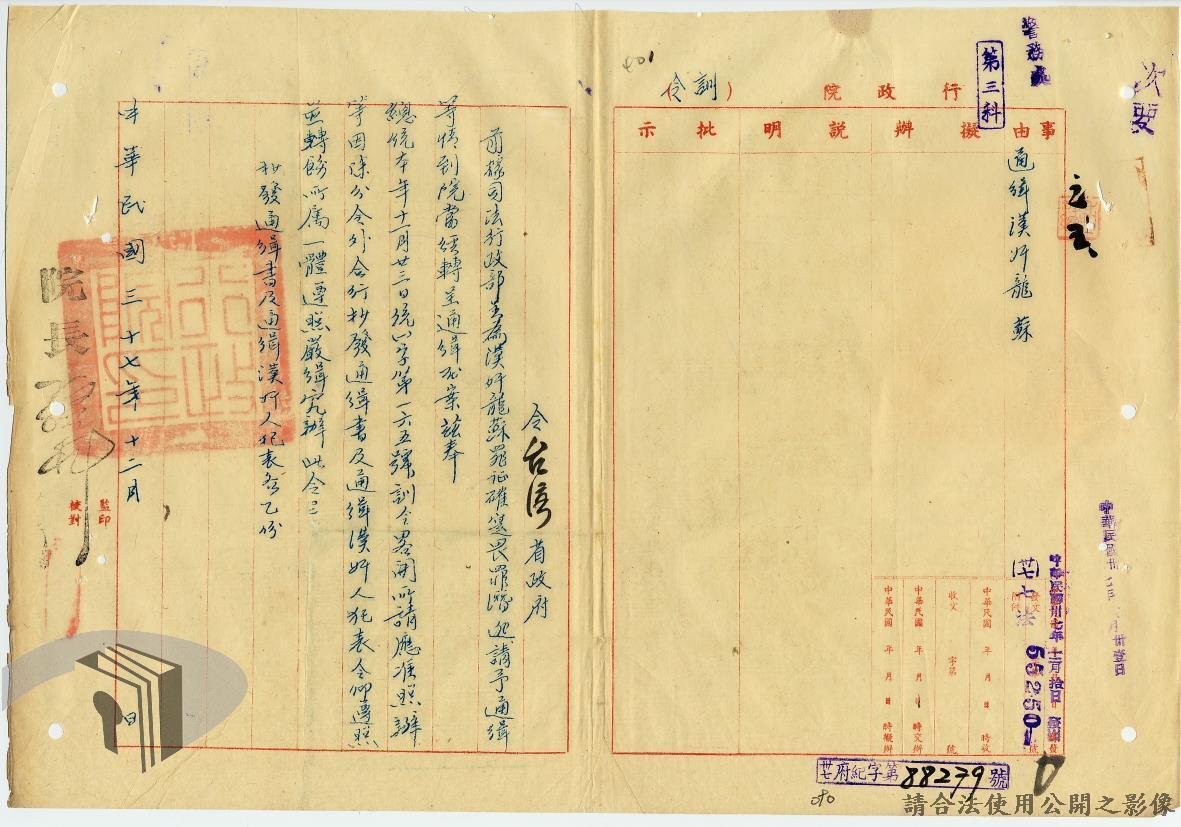 次要
警務處
第三科
行政院（訓令）
事由
擬辦
說明
批示
通緝漢奸龍蘇
中華民國卅七年十二月拾日
(卅七)七法
55250
中華民國 年 月 日 時收
收文 字第 號
中華民國 年 月 日 時交辦
中華民國 年 月 日 時擬辦
卅七府紀字第88279號
401
令台灣省政府
前據司法行政部呈為漢奸龍蘇罪証確鑿畏罪潛逃請予通緝
等情到院當經轉呈通緝在案茲奉
總統本年十一月廿三日統(一)字第一六五號訓令畧開所請應准照辦
等因除分令外合行抄發通緝書及通緝漢奸人犯表令仰遵照
並轉飭所屬一體遵照嚴緝究辦此令
抄發通緝書及通緝漢奸人犯表各乙份
中華民國三十七年十二月 日
院長
監印
校對
請合法使用公開之影像